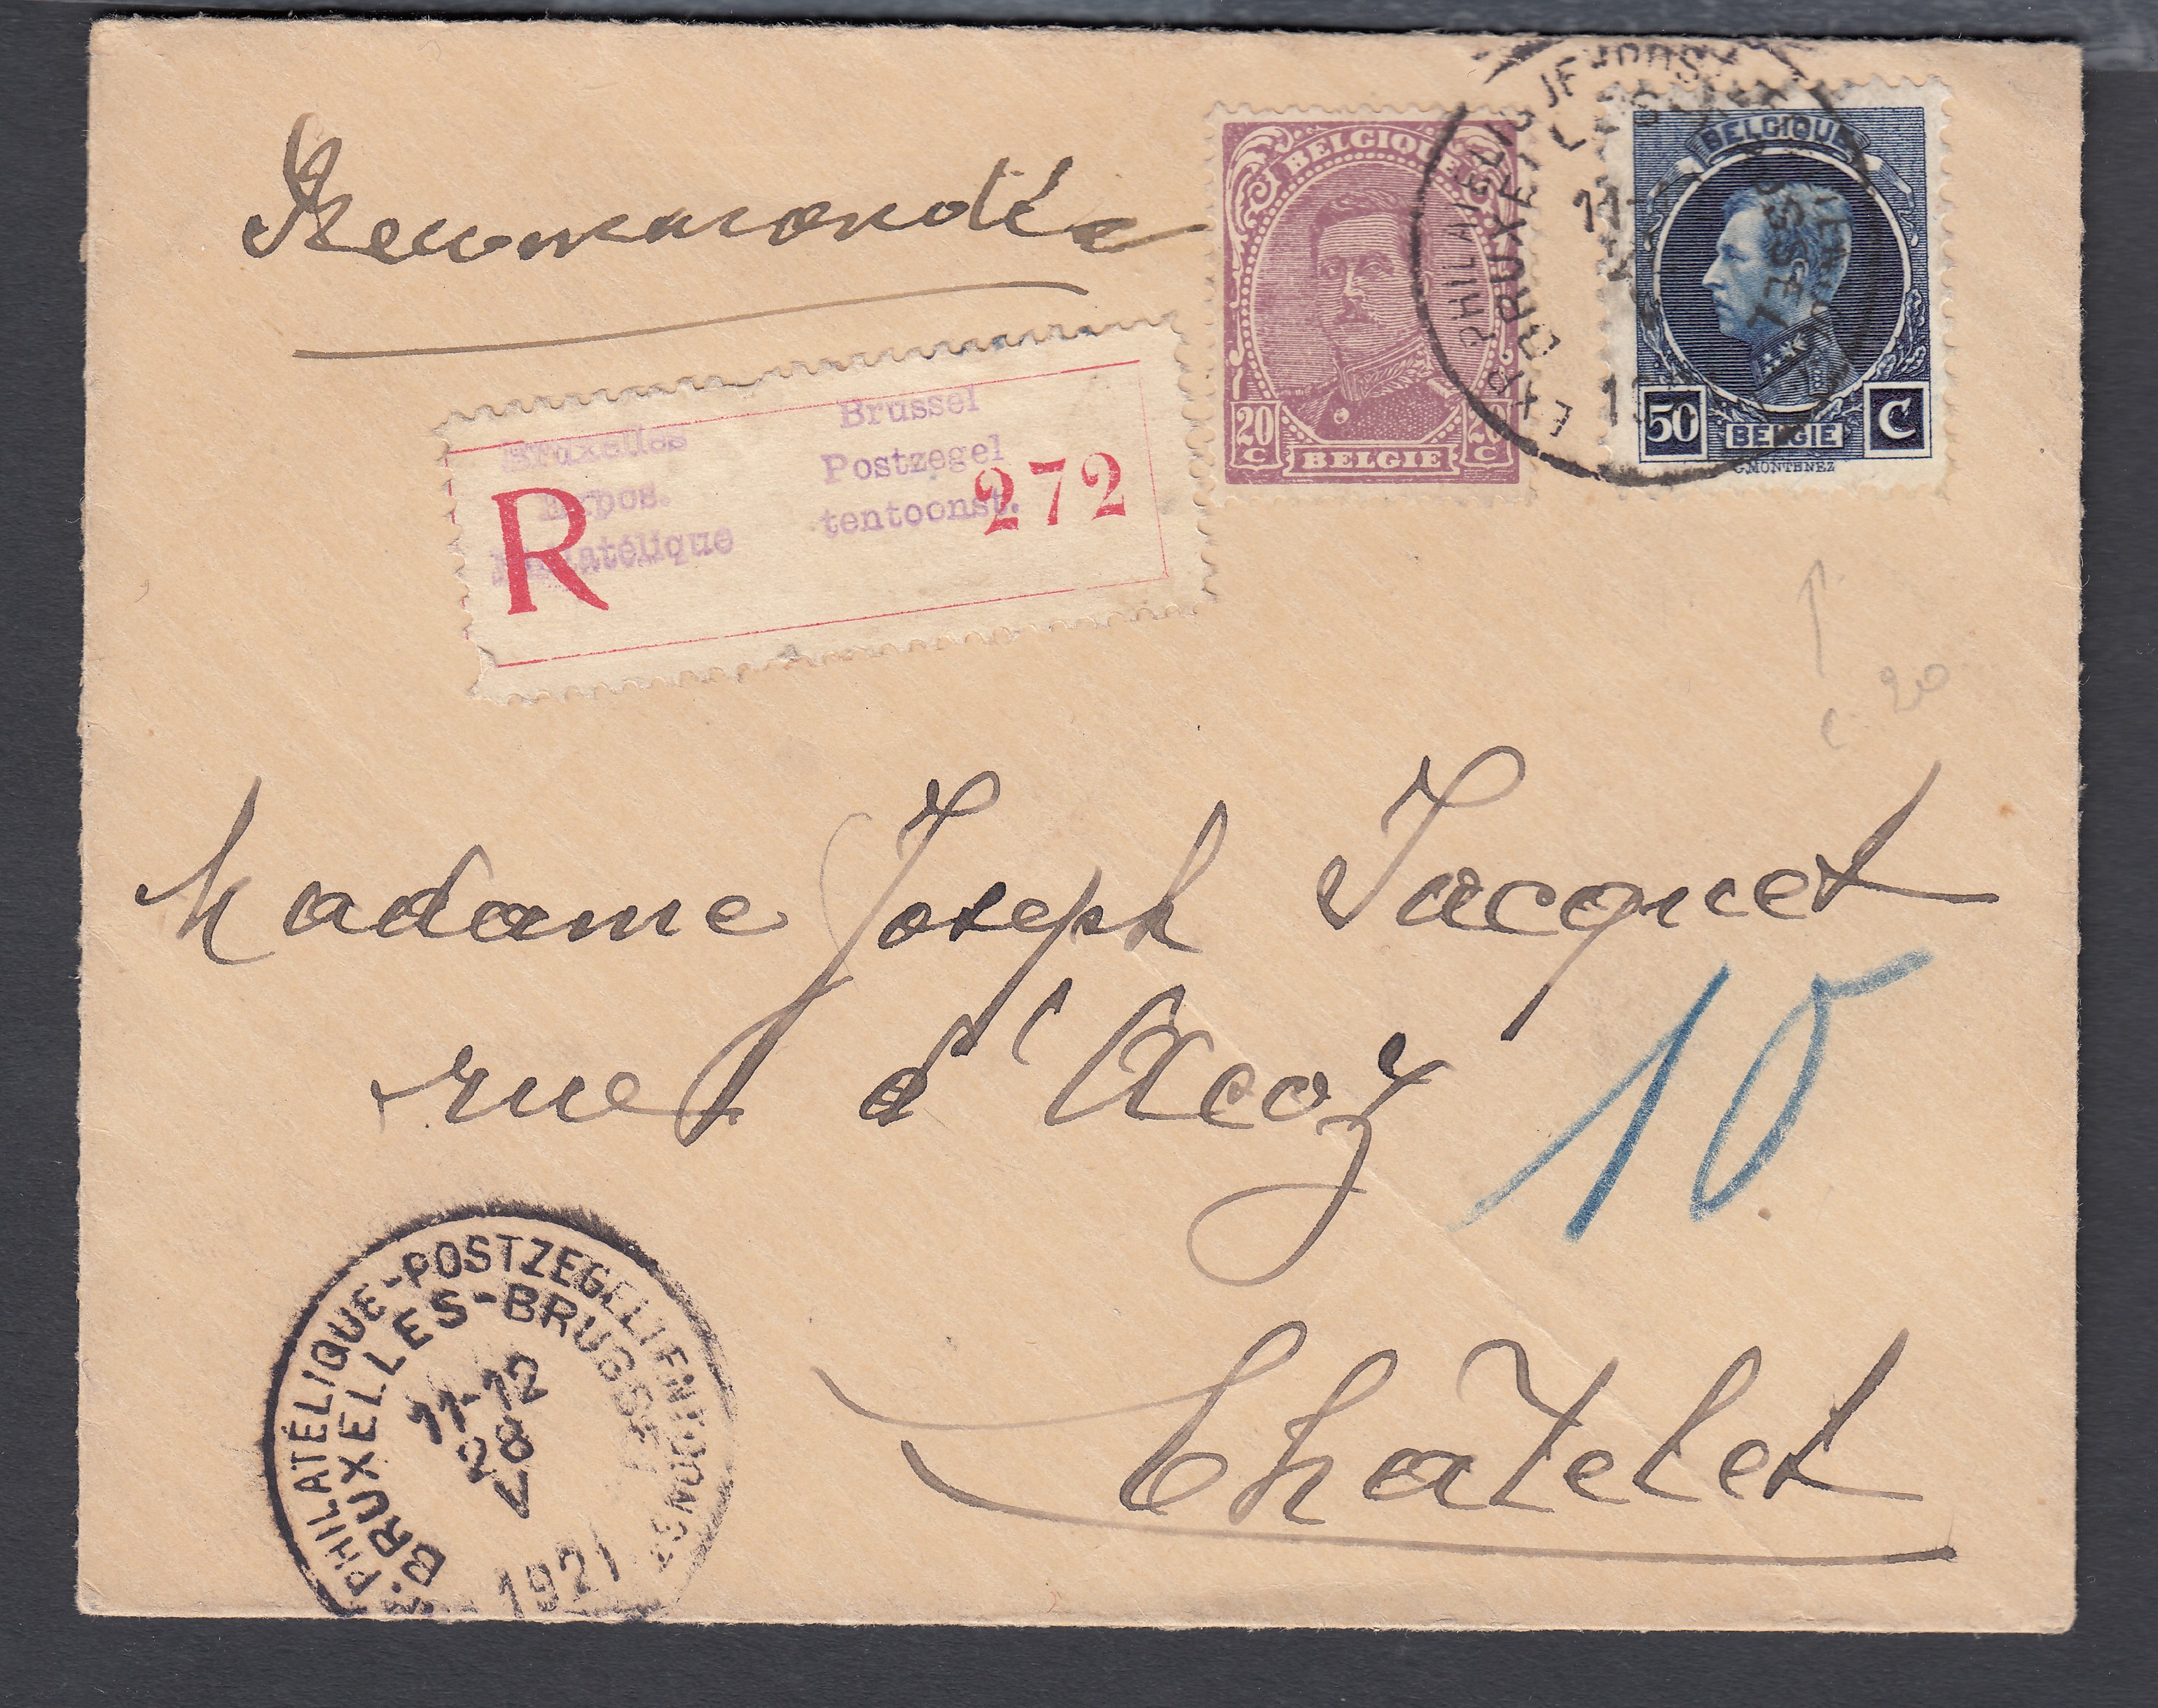 Recommandée
BELGIQUE
20 C
20 C
BELGIE
BELGIQUE
50
C
BELGIE
G.MONTENEZ
Bruxelles
Expos.
Philatélique
Brussel
Postzegel
tentoonst.
R
272
Madame Joseph Jacquet
rue d'Acoz
10
Chatelet
PHILATÉLIQUE-POSTZEGELIJE
BRUXELLES-BRUSSEL
11-12
28
V
1921